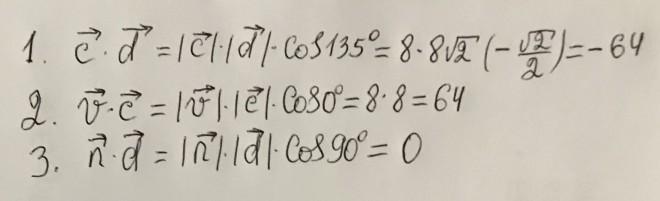 1. c⃗ · d⃗ = |c⃗|·|d⃗|· cos135° = 8 · 8√2 (-√2/2) = -64
2. v⃗·c⃗ = |v⃗|·|c⃗|· cos0° = 8 · 8 = 64
3. n⃗·d⃗ = |n⃗|·|d⃗|· cos90° = 0